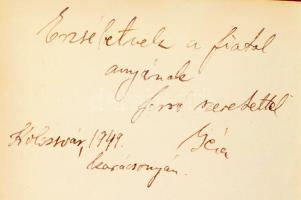 Erzsébetnek a fiatal
anyának
forró szeretettel
Kolozsvár, 1949. Géza
karácsonyán.